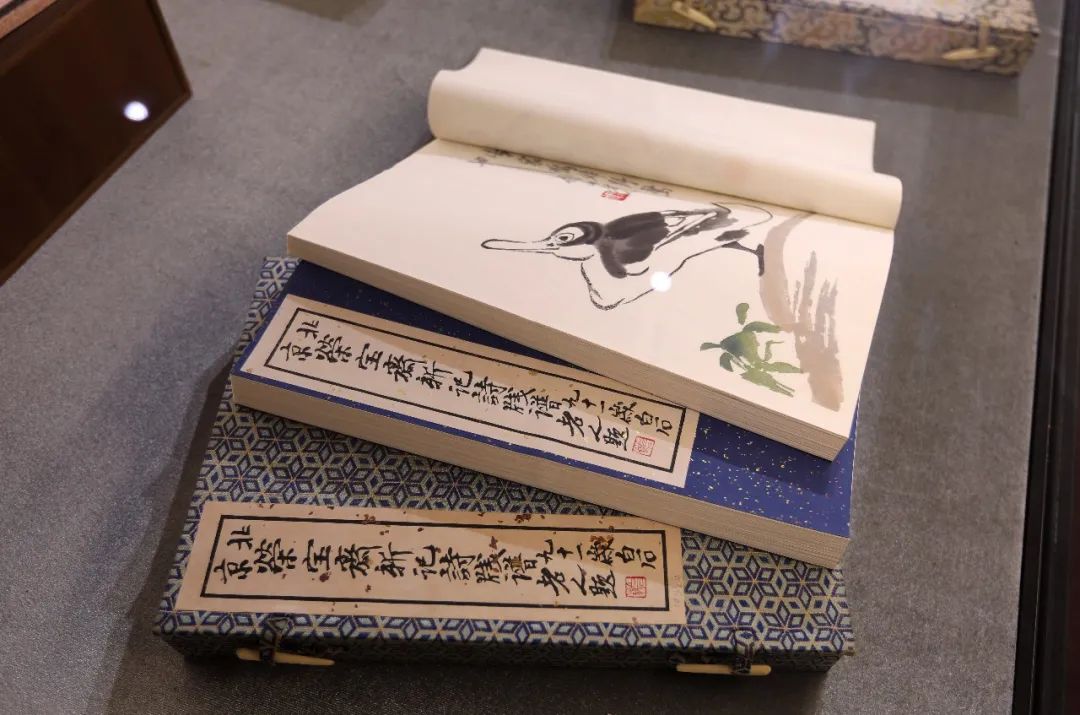 北京
榮宝齋新記詩牋譜
九十一歲白石
老人題
北京
榮宝齋新記詩牋譜
九十一歲白石
老人題